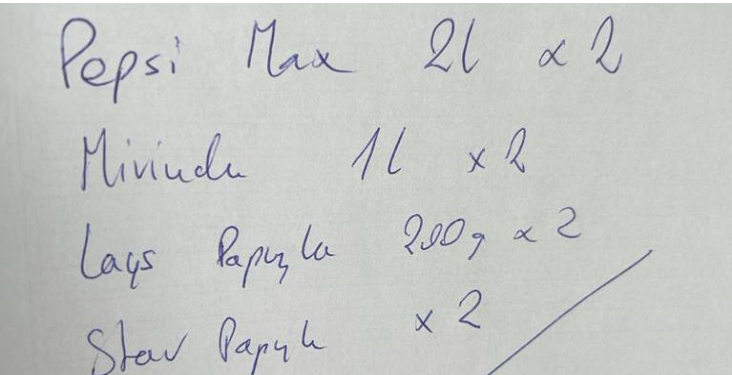 Pepsi Max 2l x 2
Mirinda 1l x 2
Lays Papryka 200g x 2
Star Papryk x 2